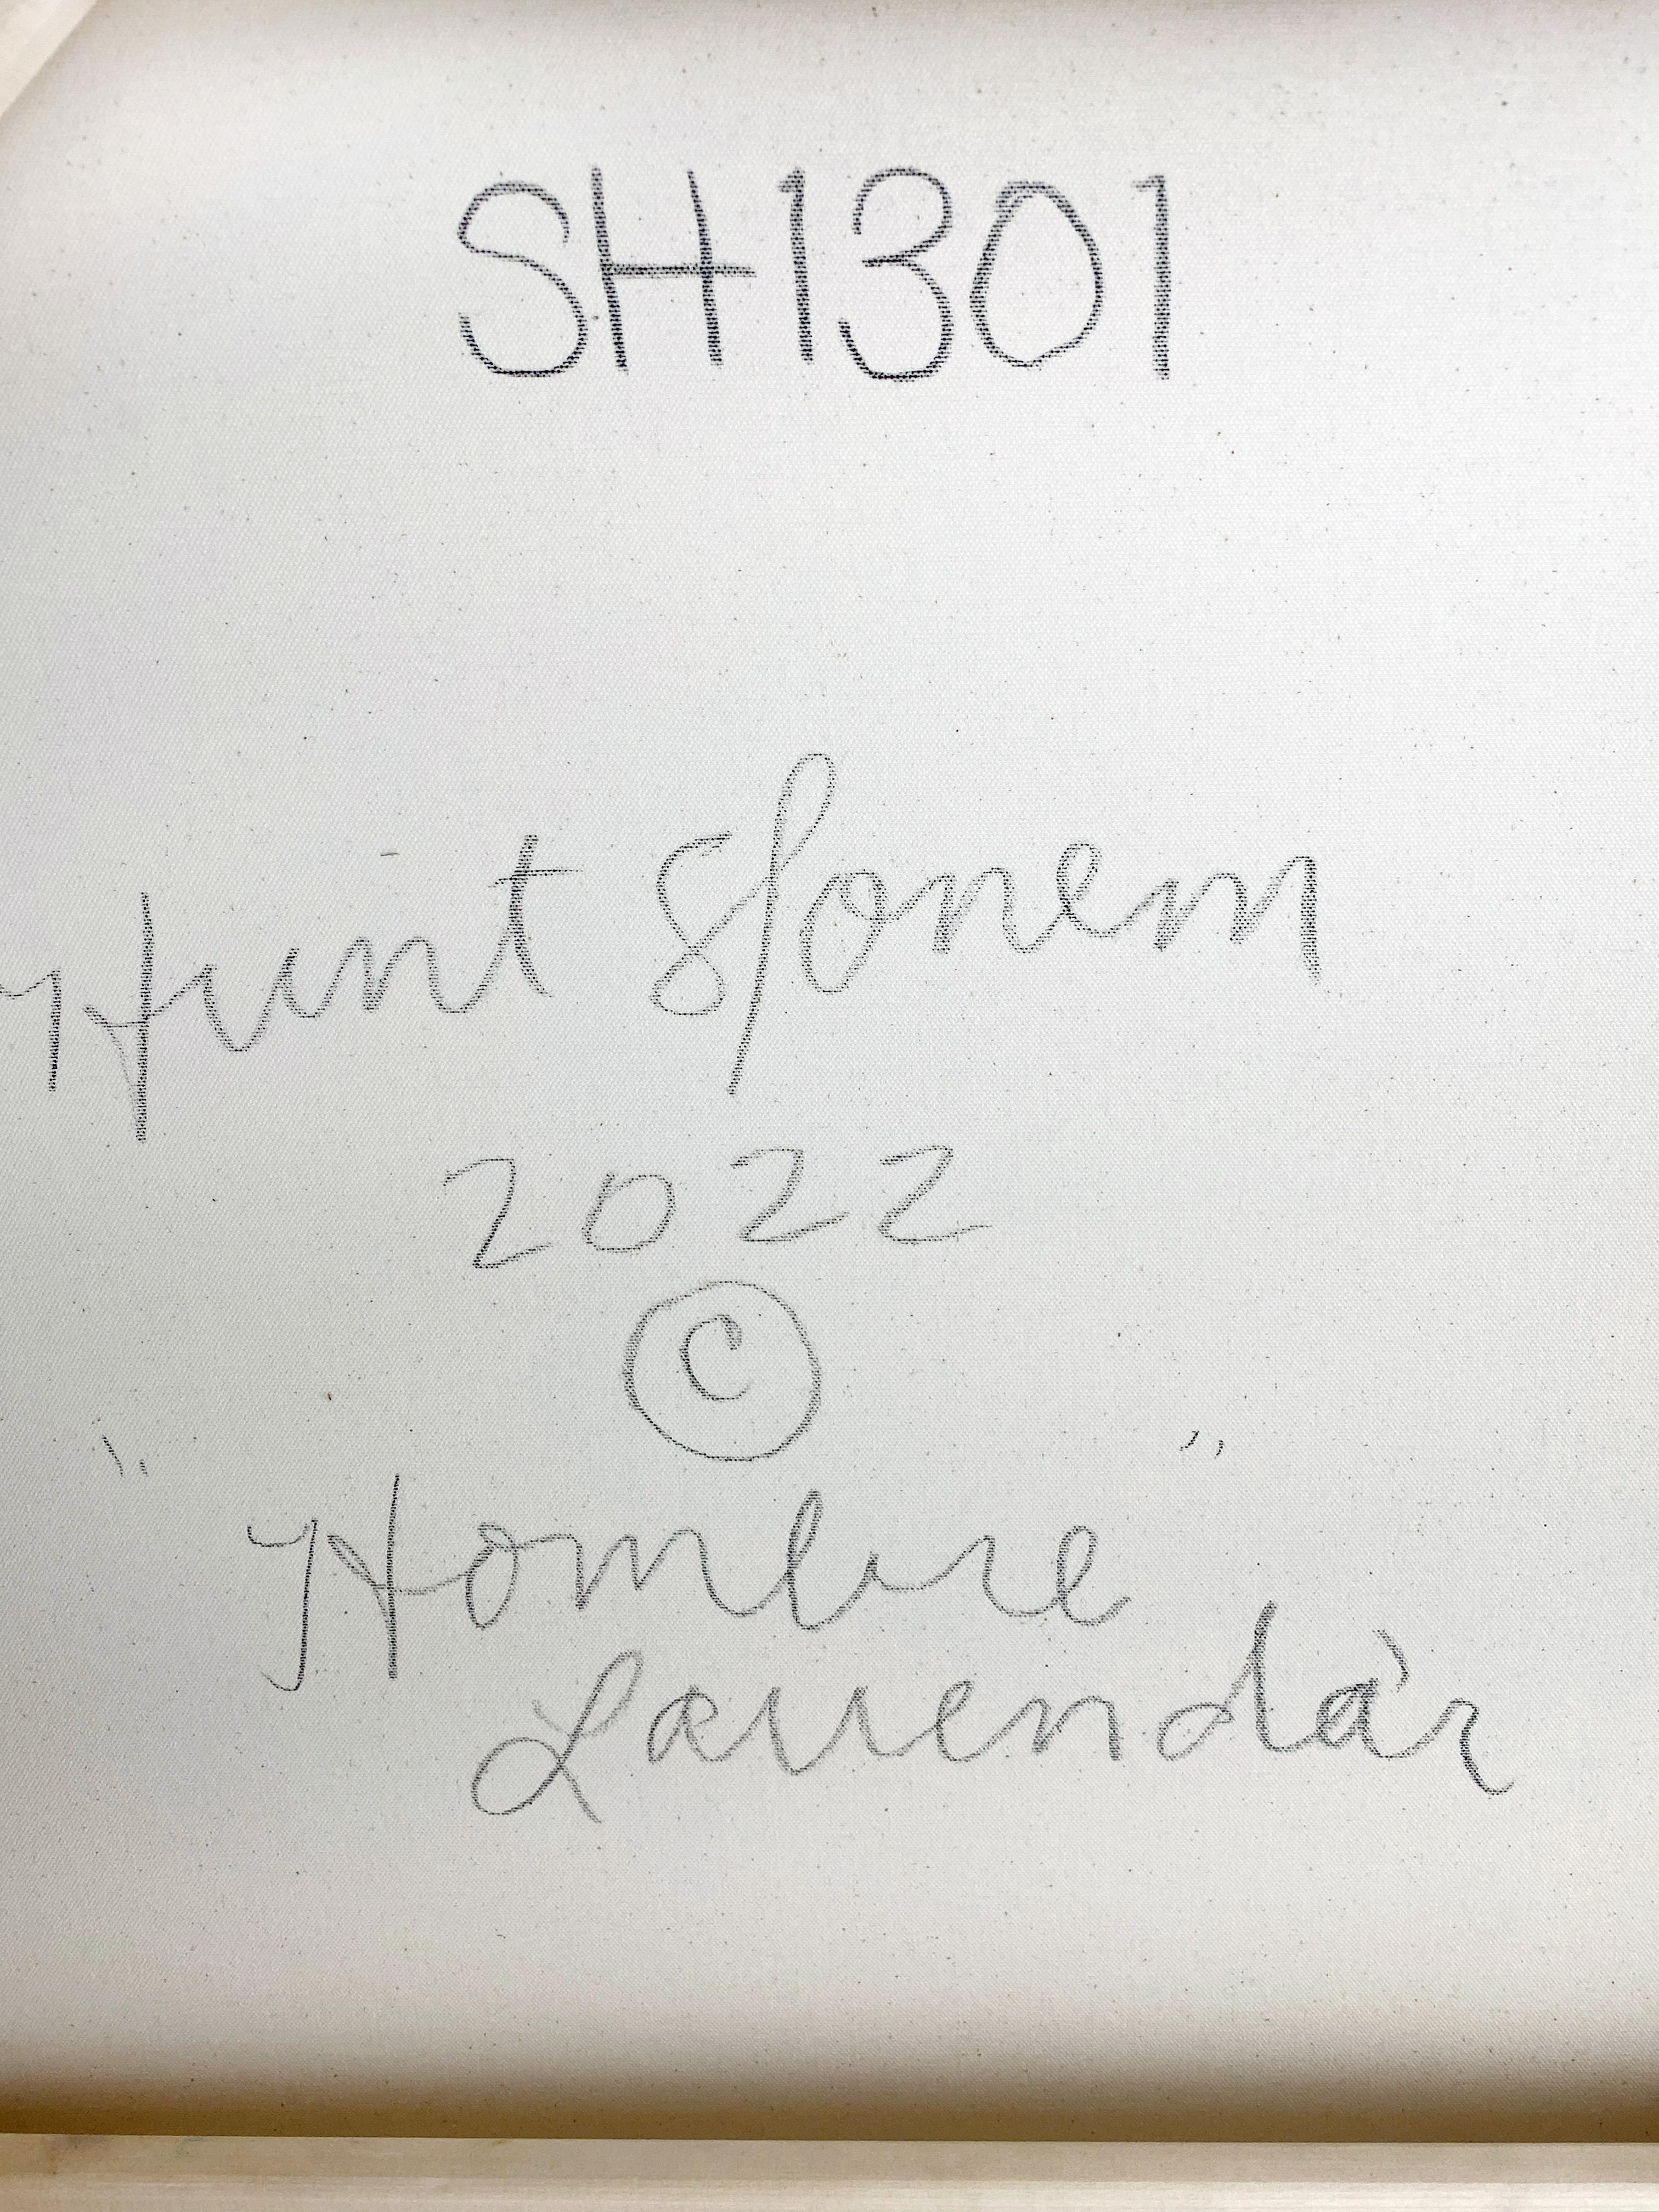 SH1301
Hunt Slonem
2022
©
"Hombre"
Lavendar